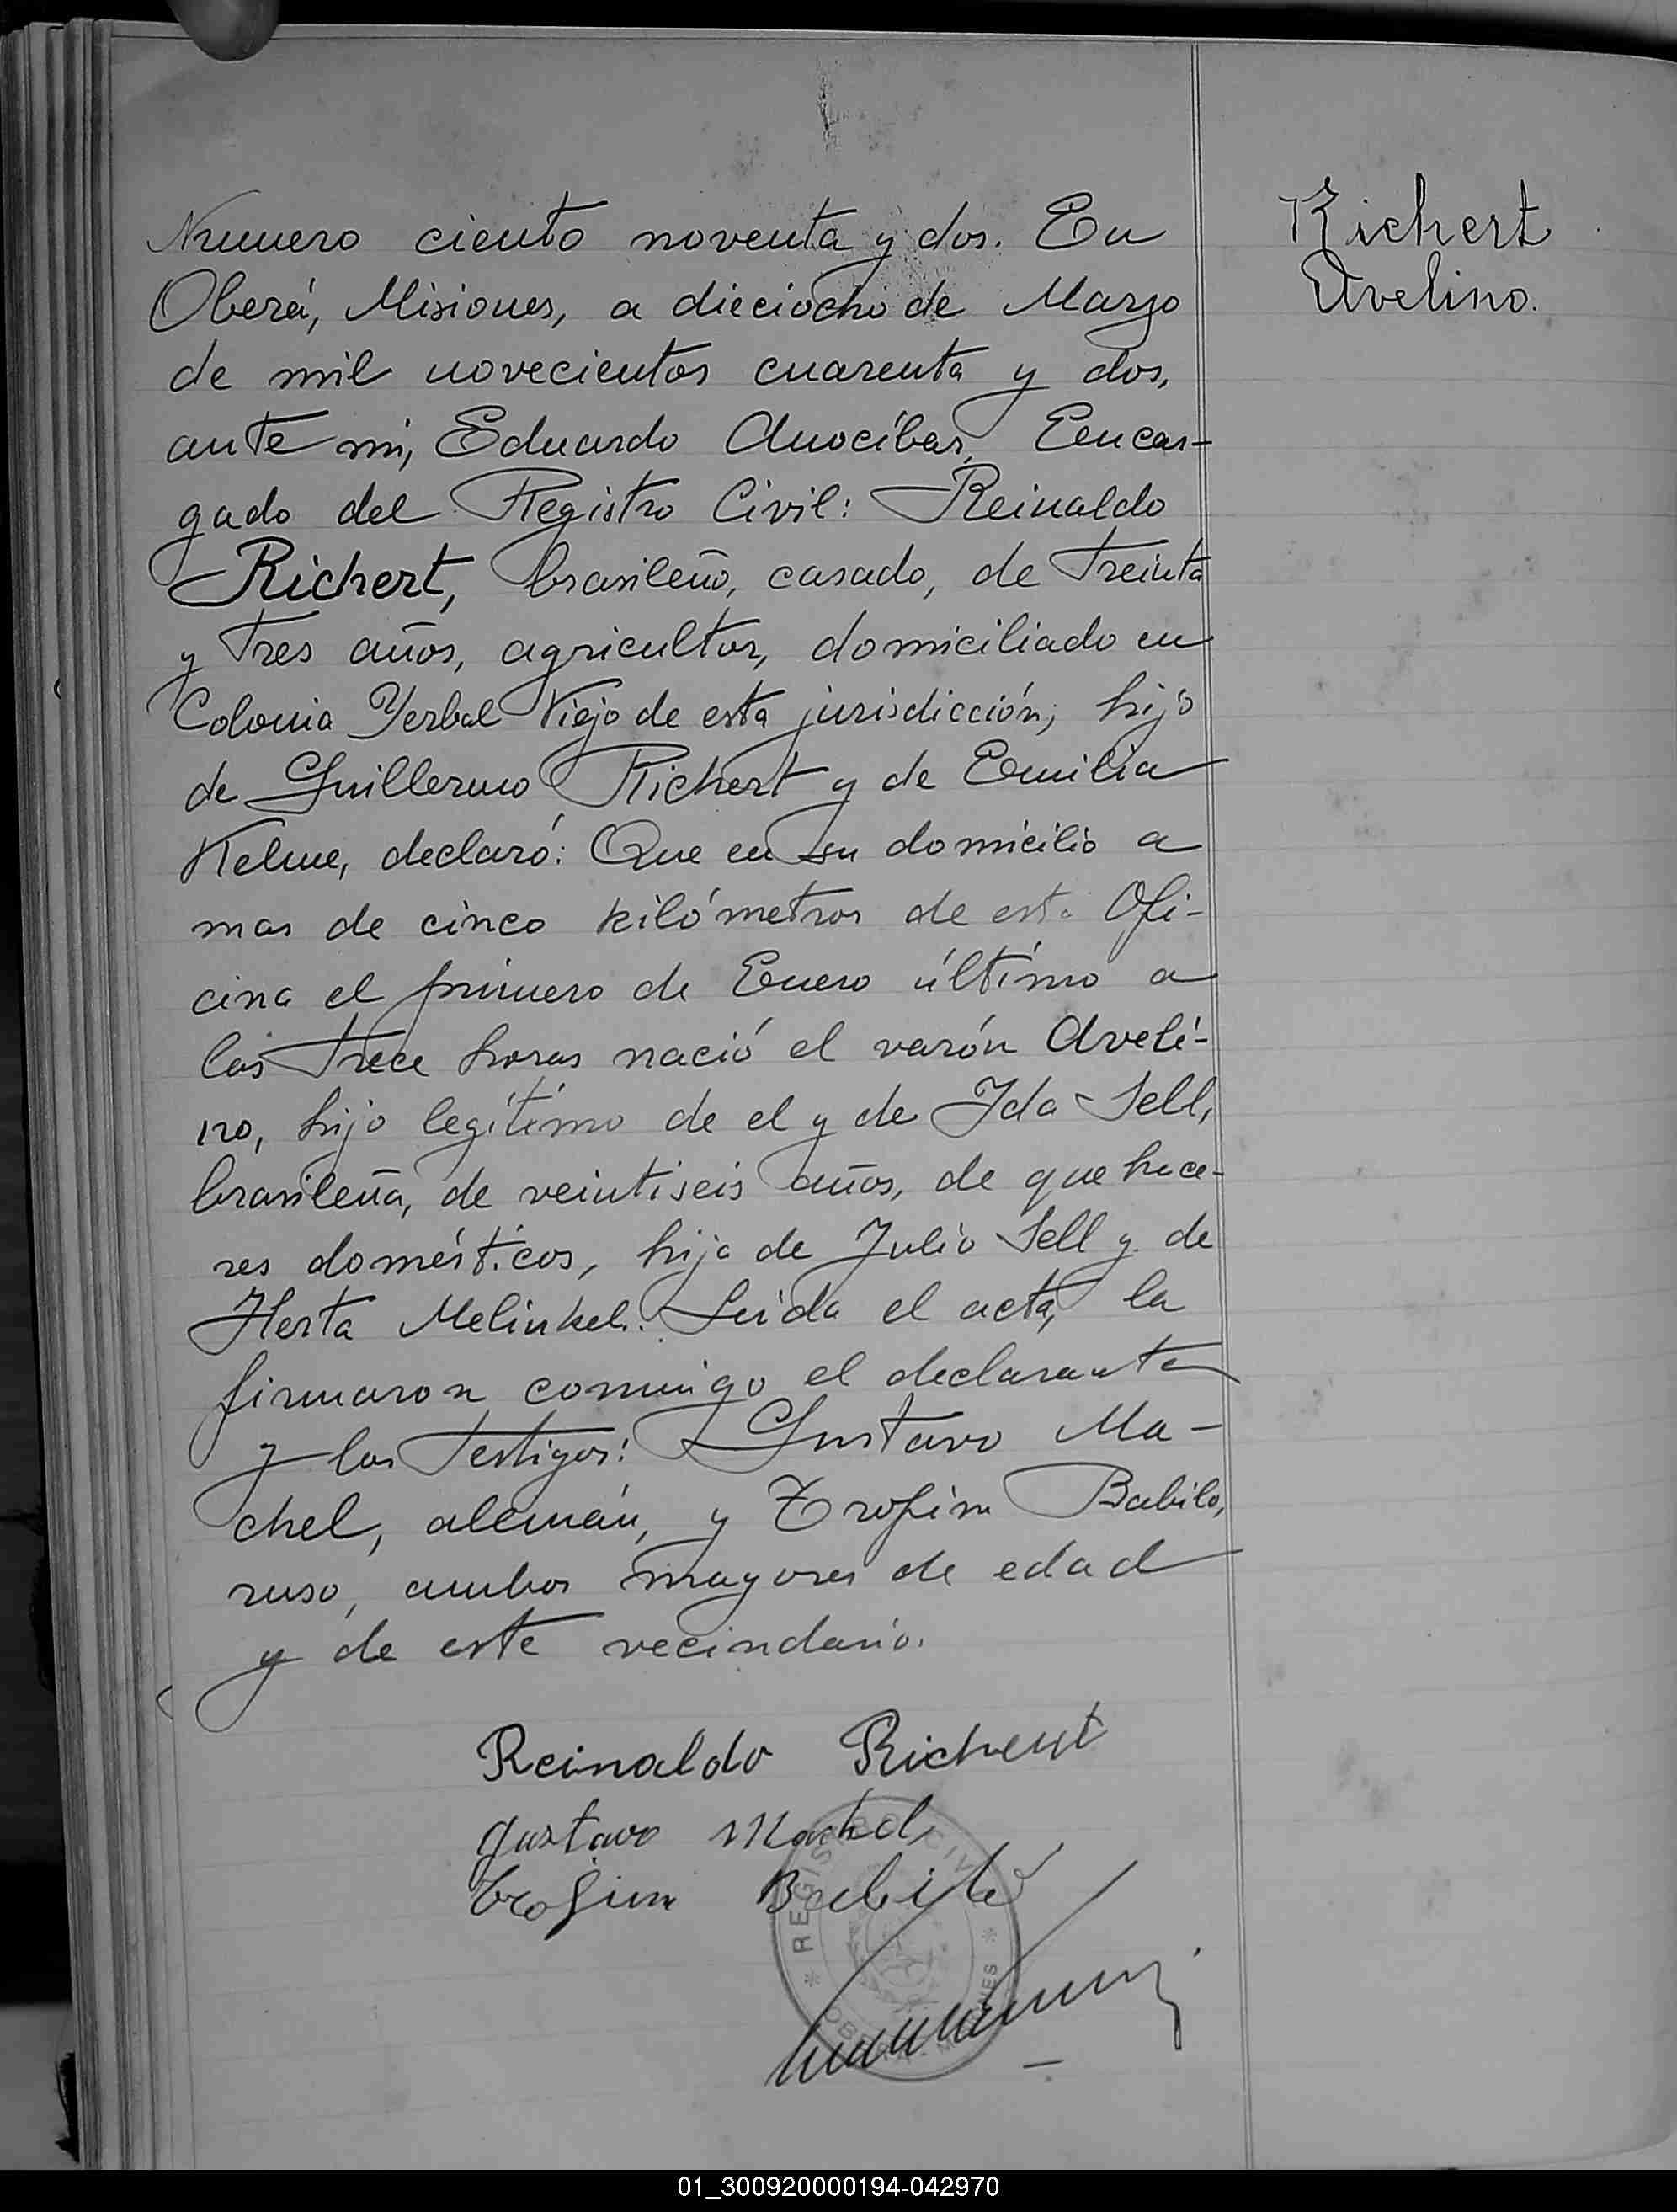 Richert
Avelino.
Numero ciento noventa y dos. En
Oberá, Misiones, a dieciocho de Marzo
de mil novecientos cuarenta y dos,
ante mi, Eduardo Anocíbar, Encar-
gado del Registro Civil: Reinaldo
Richert, brasileño, casado, de treinta
y tres años, agricultor, domiciliado en
Colonia Yerbal Viejo de esta jurisdicción, hijo
de Guillermo Richert y de Emilia
Kelme, declaró: Que en su domicilio a
mas de cinco kilómetros de esta Ofi-
cina el primero de Enero último a
las trece horas nació el varón Aveli-
no, hijo legítimo de el y de Ida Sell,
brasileña, de veintiseis años, de que hace-
res domésticos, hija de Julio Sell y de
Herta Melinkel. Leida el acta, la
firmaron conmigo el declarante
y los testigos: Gustavo Ma-
chel, alemán, y Trofim Babilo,
ruso, ambos mayores de edad
y de este vecindario.
Reinaldo Richert
Gustavo Machel
Trofim Babilo
REGISTRO CIVIL
OBERA - MISIONES
01_300920000194-042970